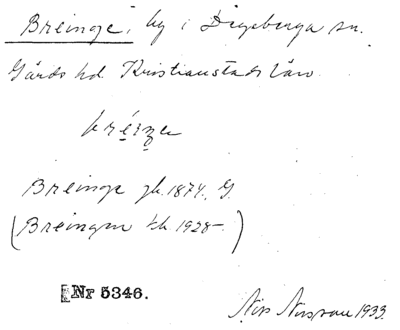 Breinge, by i Degeberga sn.
Gärds hd Kristianstads län.
Breinge jb. 1874. G.
(Breingen tk 1928-)
Nr 5346.
Nils Nilsson 1933.